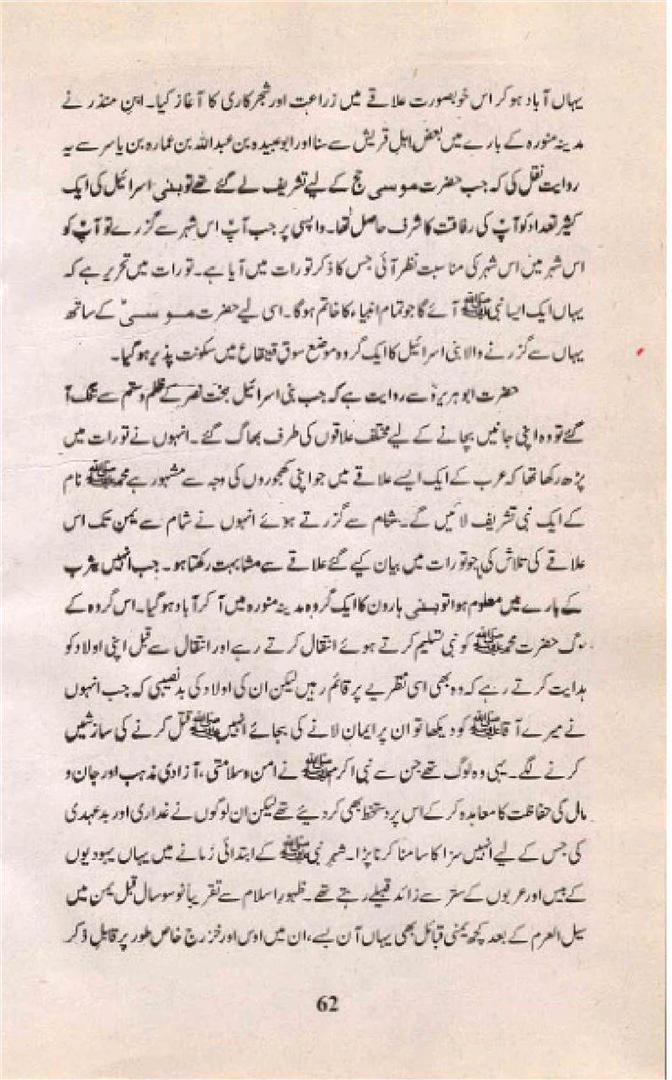 یہاں آباد ہو کر اس خوبصورت علاقے میں زراعت اور شجر کاری کا آغاز کیا۔ ابنِ منذر نے
مدینہ منورہ کے بارے میں بعض اہلِ قریش سے سنا اور ابو عبیدہ بن عبداللہ بن عمارہ بن یاسر سے یہ
روایت نقل کی کہ جب حضرت موسی حج کے لیے تشریف لے گئے تھے تو بنی اسرائیل کی ایک
کثیر تعداد کو آپؑ کی رفاقت کا شرف حاصل تھا۔ واپسی پر جب آپؑ اس شہر سے گزرے تو آپؑ کو
اس شہر میں اس شہر کی مناسبت نظر آئی جس کا ذکر تورات میں آیا ہے۔ تورات میں تحریر ہے کہ
یہاں ایک ایسا نبی ﷺ آئے گا جو تمام انبیاء کا خاتم ہوگا۔ اسی لیے حضرت موسیٰؑ کے ساتھ
یہاں سے گزرنے والا بنی اسرائیل کا ایک گروہ موضع سوق قینقاع میں سکونت پذیر ہو گیا۔
حضرت ابو ہریرہؓ سے روایت ہے کہ جب بنی اسرائیل بخت نصر کے ظلم و ستم سے تنگ آ
گئے تو وہ اپنی جانیں بچانے کے لیے مختلف علاقوں کی طرف بھاگ گئے۔ انہوں نے تورات میں
پڑھ رکھا تھا کہ عرب کے ایک ایسے علاقے میں جو اپنی کھجوروں کی وجہ سے مشہور ہے محمد ﷺ نام
کے ایک نبی تشریف لائیں گے۔ شام سے گزرتے ہوئے انہوں نے شام سے یمن تک اس
علاقے کی تلاش کی جو تورات میں بیان کیے گئے علاقے سے مشابہت رکھتا ہو۔ جب انہیں یثرب
کے بارے میں معلوم ہوا تو بنی ہارون کا ایک گروہ مدینہ منورہ میں آ کر آباد ہو گیا۔ اس گروہ کے
لوگ حضرت محمد ﷺ کو نبی تسلیم کرتے ہوئے انتقال کرتے رہے اور انتقال سے قبل اپنی اولاد کو
ہدایت کرتے رہے کہ وہ بھی اسی نظریے پر قائم رہیں لیکن ان کی اولاد کی بدنصیبی کہ جب انہوں
نے میرے آقا ﷺ کو دیکھا تو ان پر ایمان لانے کی بجائے انہیں ﷺ قتل کرنے کی سازشیں
کرنے لگے۔ یہی وہ لوگ تھے جن سے نبی اکرم ﷺ نے امن و سلامتی، آزادی مذہب اور جان و
مال کی حفاظت کا معاہدہ کر کے اس پر دستخط بھی کر دیئے تھے لیکن ان لوگوں نے غداری اور بدعہدی
کی جس کے لیے انہیں سزا کا سامنا کرنا پڑا۔ شہرِ نبی ﷺ کے ابتدائی زمانے میں یہاں یہودیوں
کے بیس اور عربوں کے ستر سے زائد قبیلے رہتے تھے۔ ظہورِ اسلام سے تقریباً نو سو سال قبل یمن میں
سیل العرم کے بعد کچھ یمنی قبائل بھی یہاں آن بسے، ان میں اوس اور خزرج خاص طور پر قابل ذکر
62